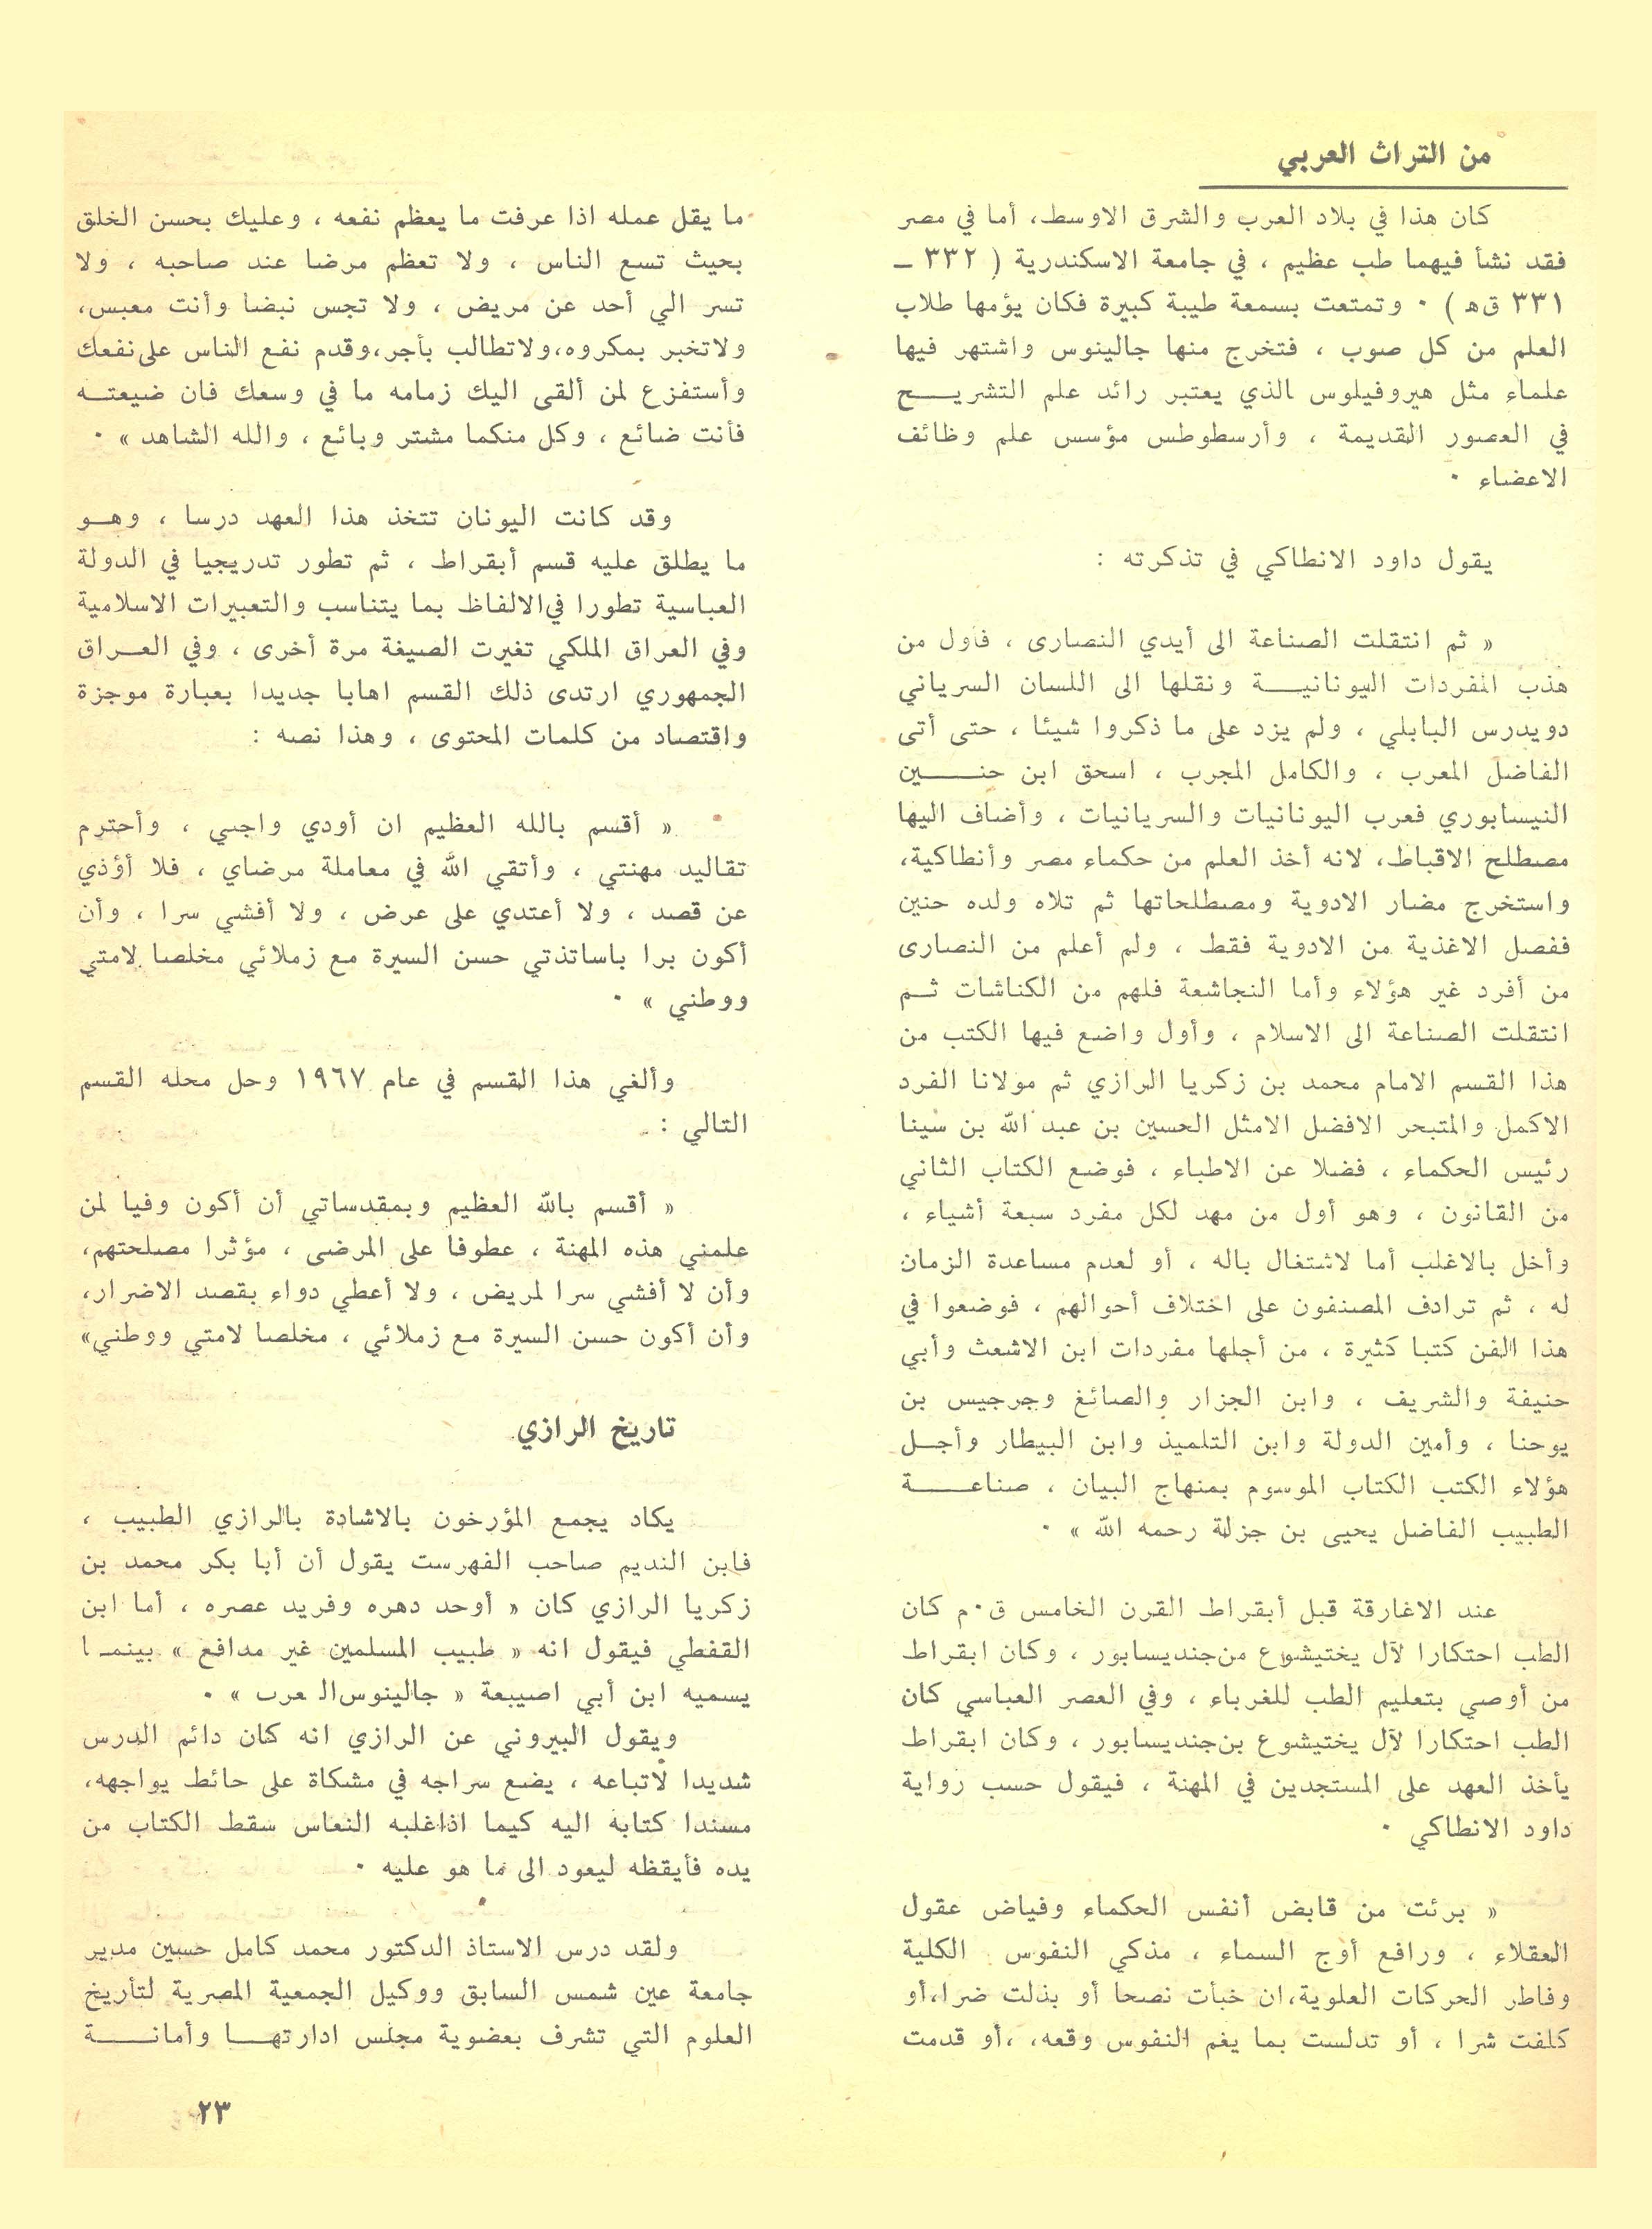 من التراث العربي
كان هذا في بلاد العرب والشرق الاوسط، أما في مصر
فقد نشأ فيهما طب عظيم ، في جامعة الاسكندرية ( ٣٣٢ ـ
٣٣١ ق٠ه ) ٠ وتمتعت بسمعة طيبة كبيرة فكان يؤمها طلاب
العلم من كل صوب ، فتخرج منها جالينوس واشتهر فيها
علماء مثل هيروفيلوس الذي يعتبر رائد علم التشريح
في العصور القديمة ، وأرسطوطس مؤسس علم وظائف
الاعضاء ٠
يقول داود الانطاكي في تذكرته :
« ثم انتقلت الصناعة الى أيدي النصارى ، فاول من
هذب المفردات اليونانية ونقلها الى اللسان السرياني
دويدرس البابلي ، ولم يزد على ما ذكروا شيئا ، حتى أتى
الفاضل المعرب ، والكامل المجرب ، اسحق ابن حنين
النيسابوري فعرب اليونانيات والسريانيات ، وأضاف اليها
مصطلح الاقباط، لانه أخذ العلم من حكماء مصر وأنطاكية،
واستخرج مضار الادوية ومصطلحاتها ثم تلاه ولده حنين
ففصل الاغذية من الادوية فقط ، ولم أعلم من النصارى
من أفرد غير هؤلاء وأما النجاشعة فلهم من الكناشات ثم
انتقلت الصناعة الى الاسلام ، وأول واضع فيها الكتب من
هذا القسم الامام محمد بن زكريا الرازي ثم مولانا الفرد
الاكمل والمتبحر الافضل الامثل الحسين بن عبد الله بن سينا
رئيس الحكماء ، فضلا عن الاطباء ، فوضع الكتاب الثاني
من القانون ، وهو أول من مهد لكل مفرد سبعة أشياء ،
وأخل بالاغلب أما لاشتغال باله ، أو لعدم مساعدة الزمان
له ، ثم ترادف المصنفون على اختلاف أحوالهم ، فوضعوا في
هذا الفن كتبا كثيرة ، من أجلها مفردات ابن الاشعث وأبي
حنيفة والشريف ، وابن الجزار والصائغ وجرجيس بن
يوحنا ، وأمين الدولة وابن التلميذ وابن البيطار وأجل
هؤلاء الكتب الكتاب الموسوم بمنهاج البيان ، صناعة
الطبيب الفاضل يحيى بن جزلة رحمه الله » ٠
عند الاغارقة قبل أبقراط القرن الخامس ق٠م كان
الطب احتكارا لآل يختيشوع من جنديسابور ، وكان ابقراط
من أوصي بتعليم الطب للغرباء ، وفي العصر العباسي كان
الطب احتكارا لآل يختيشوع بن جنديسابور ، وكان ابقراط
يأخذ العهد على المستجدين في المهنة ، فيقول حسب رواية
داود الانطاكي ٠
« برئت من قابض أنفس الحكماء وفياض عقول
العقلاء ، ورافع أوج السماء ، مذكي النفوس الكلية
وفاطر الحركات العلوية،ان خبأت نصحا أو بذلت ضرا،أو
كلفت شرا ، أو تدلست بما يغم النفوس وقعه، ،أو قدمت
ما يقل عمله اذا عرفت ما يعظم نفعه ، وعليك بحسن الخلق
بحيث تسع الناس ، ولا تعظم مرضا عند صاحبه ، ولا
تسر الي أحد عن مريض ، ولا تجس نبضا وأنت معبس،
ولاتخبر بمكروه،ولاتطالب بأجر،وقدم نفع الناس على نفعك
وأستفزع لمن ألقى اليك زمامه ما في وسعك فان ضيعته
فأنت ضائع ، وكل منكما مشتر وبائع ، والله الشاهد » ٠
وقد كانت اليونان تتخذ هذا العهد درسا ، وهو
ما يطلق عليه قسم أبقراط ، ثم تطور تدريجيا في الدولة
العباسية تطورا في الالفاظ بما يتناسب والتعبيرات الاسلامية
وفي العراق الملكي تغيرت الصيغة مرة أخرى ، وفي العراق
الجمهوري ارتدى ذلك القسم اهابا جديدا بعبارة موجزة
واقتصاد من كلمات المحتوى ، وهذا نصه :
« أقسم بالله العظيم ان أودي واجبي ، وأحترم
تقاليد مهنتي ، وأتقي الله في معاملة مرضاي ، فلا أؤذي
عن قصد ، ولا أعتدي على عرض ، ولا أفشي سرا ، وأن
أكون برا باساتذتي حسن السيرة مع زملائي مخلصا لامتي
ووطني » ٠
وألغي هذا القسم في عام ١٩٦٧ وحل محله القسم
التالي :
« أقسم بالله العظيم وبمقدساتي أن أكون وفيا لمن
علمني هذه المهنة ، عطوفا على المرضى ، مؤثرا مصلحتهم،
وأن لا أفشي سرا لمريض ، ولا أعطي دواء بقصد الاضرار،
وأن أكون حسن السيرة مع زملائي ، مخلصا لامتي ووطني»
تاريخ الرازي
يكاد يجمع المؤرخون بالاشادة بالرازي الطبيب ،
فابن النديم صاحب الفهرست يقول أن أبا بكر محمد بن
زكريا الرازي كان « أوحد دهره وفريد عصره ، أما ابن
القفطي فيقول انه « طبيب المسلمين غير مدافع » بينما
يسميه ابن أبي اصيبعة « جالينوس العرب » ٠
ويقول البيروني عن الرازي انه كان دائم الدرس
شديدا لأتباعه ، يضع سراجه في مشكاة على حائط يواجهه،
مسندا كتابه اليه كيما اذاغلبه النعاس سقط الكتاب من
يده فأيقظه ليعود الى ما هو عليه ٠
ولقد درس الاستاذ الدكتور محمد كامل حسين مدير
جامعة عين شمس السابق ووكيل الجمعية المصرية لتأريخ
العلوم التي تشرف بعضوية مجلس ادارتها وأمانة
٢٣